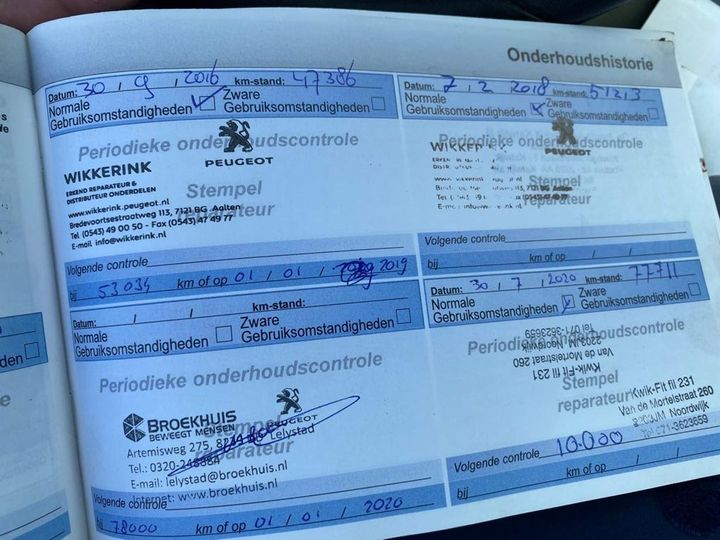 Onderhoudshistorie
Datum: 30 / 9 / 2016 km-stand: 47386
Normale Gebruiksomstandigheden
Zware Gebruiksomstandigheden
Periodieke onderhoudscontrole
WIKKERINK
PEUGEOT
ERKEND REPARATEUR &
DISTRIBUTEUR ONDERDELEN
Stempel
reparateur
www.wikkerink.peugeot.nl
Bredevoortsestraatweg 113, 7121 BG Aalten
Tel (0543) 49 00 50 - Fax (0543) 47 49 77
E-mail info@wikkerink.nl
Volgende controle
bij 53034 km of op 01 / 01 / 2019
Datum: 7 / 2 2018 km-stand: 51213
Normale Gebruiksomstandigheden
Zware Gebruiksomstandigheden
Periodieke onderhoudscontrole
PEUGEOT
Stempel
reparateur
113, 7121 BG Aalten
Volgende controle
bij km of op / /
Datum: / / km-stand:
Normale Gebruiksomstandigheden
Zware Gebruiksomstandigheden
Periodieke onderhoudscontrole
BROEKHUIS
BEWEEGT MENSEN
PEUGEOT
Stempel
reparateur
Artemisweg 275, Lelystad
Tel.: 0320-
E-mail: lelystad@broekhuis.nl
Internet: www.broekhuis.nl
Volgende controle
bij 78000 km of op 01 / 01 / 2020
Datum: 30 / 7 / 2020 km-stand: 77711
Normale Gebruiksomstandigheden
Zware Gebruiksomstandigheden
Periodieke onderhoudscontrole
Kwik-Fit fil 231
Van de Mortelstraat 260
2203JM Noordwijk
Tel 071-3623659
Stempel
reparateur
Kwik-Fit fil 231
Van de Mortelstraat 260
2203JM Noordwijk
Tel 071-3623659
Volgende controle 10.000
bij km of op / /